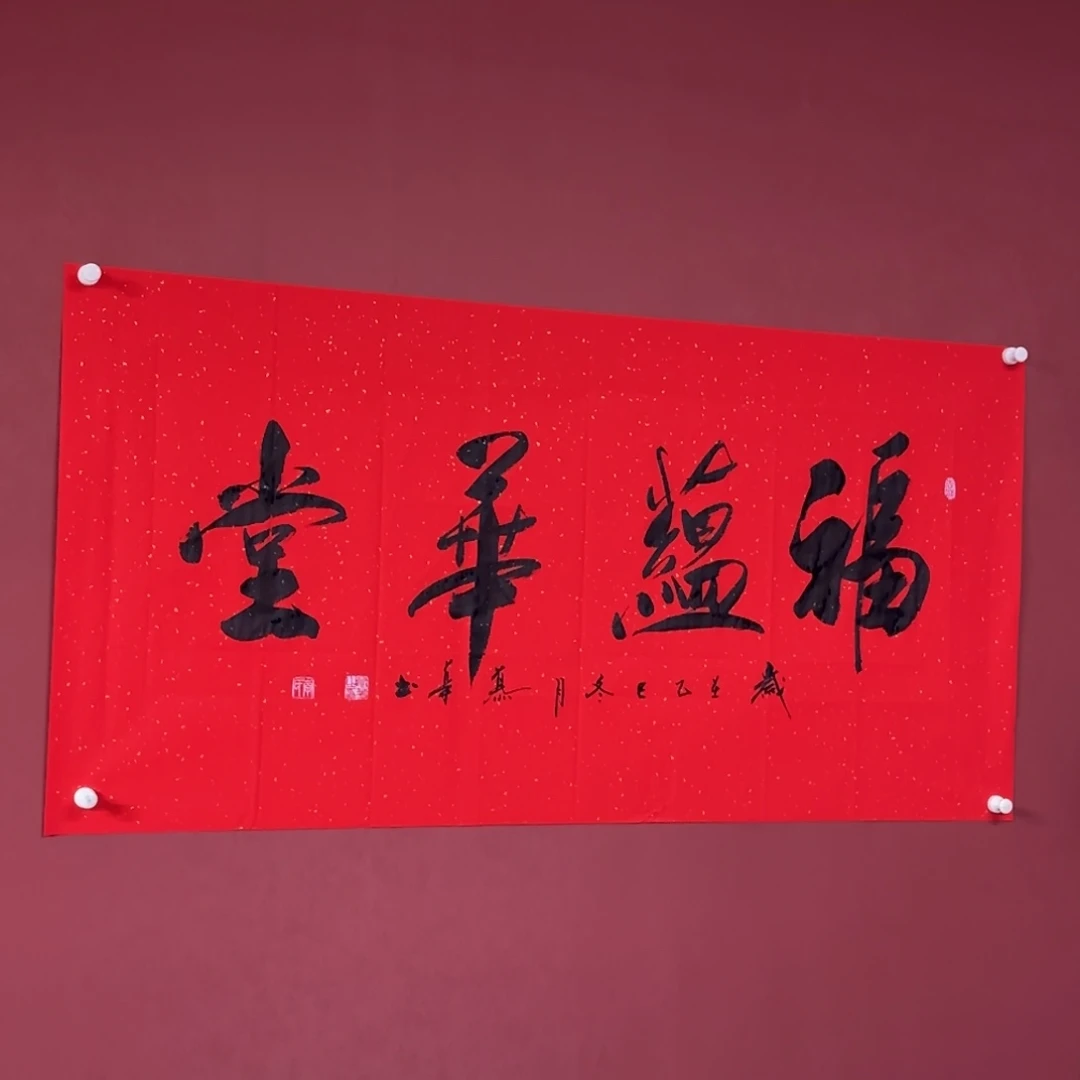 福蘊華堂
歲在乙巳冬月慕華書